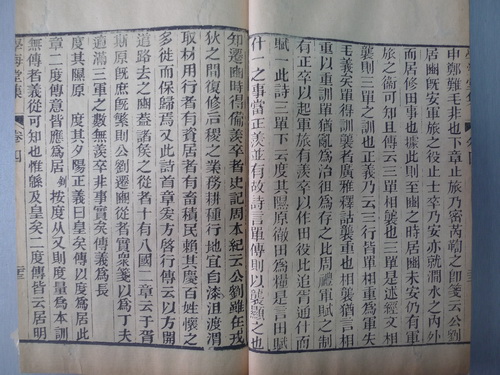 申鄭難毛非也下章止旅乃密芮鞫之卽箋云公劉
居豳旣安軍旅之役止士卒乃安亦就澗水之內外
而居修田事也據此則至豳之時居豳未安仍有軍
旅之備可知且傳云三單相襲也三單是述經文相
襲則三單之訓也正義乃云三行皆單相重爲軍失
毛義矣單得訓襲者廣雅釋詁襲重也相襲猶言相
重以重訓單猶亂之訓治徂爲存之比周禮軍賦之制
有正卒以起軍旅有羨卒以作田役以比追胥通什而
賦一此詩三單下云度其隰原徹田爲糧是三田賦
什一之事當正羨並有故詩言單傳則以襲題之也
知遷豳時得備羨卒者史記周本紀云公劉雖在戎
狄之間復修后稷之業務耕種行地宜自漆沮渡渭
取材用行者有資居者有畜積民賴其慶百姓懷之
多徙而保歸焉又此詩首章爰方啓行傳云以方開
道路去之豳蓋諸侯之從者十有八國二章云于胥
斯原旣庶旣繁則公劉遷豳從者實衆箋以爲丁夫
適滿三軍之數無羨卒非事實矣傳義爲長
度其隰原 度其夕陽正義曰皇矣傳以度爲居此
章二度傳意皆應爲居 按度从又則度量爲本訓
無傳者義從可知也惟緜及皇矣二度傳皆云居明
學海堂集 卷四